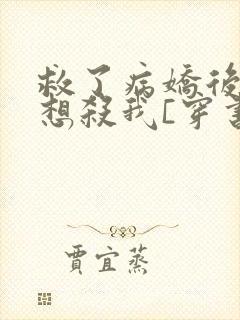 救了病嬌後
想殺我[穿書
賈宜蒸